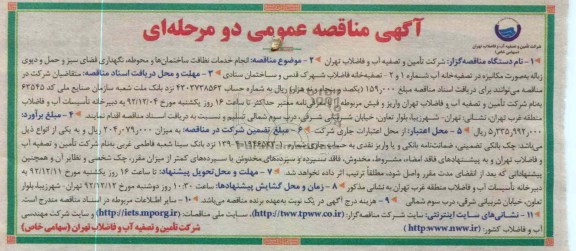 آگهی مناقصه عمومی دو مرحله‌ای
شرکت تأمین و تصفیه آب و فاضلاب تهران
(سهامی خاص)
۱- نام دستگاه مناقصه‌گزار: شرکت تأمین و تصفیه آب و فاضلاب تهران ۲- موضوع مناقصه: انجام خدمات نظافت ساختمان‌ها و محوطه، نگهداری فضای سبز و حمل و دپوی
زباله به‌صورت مکانیزه در تصفیه‌خانه آب شماره ۱ و ۲ - تصفیه‌خانه فاضلاب شهرک قدس و ساختمان ستادی ۳- مهلت و محل دریافت اسناد مناقصه: متقاضیان شرکت در
مناقصه می‌توانند برای دریافت اسناد مناقصه مبلغ ۱۵۹,۰۰۰ (یکصد و پنجاه و نه هزار) ریال به شماره حساب ۴۲۰۳۷۲۸۵۶۲ نزد بانک ملت شعبه سازمان صنایع ملی کد ۶۲۵۴۵
به‌نام شرکت تأمین و تصفیه آب و فاضلاب تهران واریز و فیش مربوطه را با معرفی‌نامه معتبر حداکثر تا ساعت ۱۶ روز یکشنبه مورخ ۹۲/۱۲/۰۴ به دبیرخانه تأسیسات آب و فاضلاب
منطقه غرب تهران، نشانی: تهران، شهرزیبا، بلوار تعاون، خیابان شربیانی شرقی، درب سوم شمالی تسلیم و نسبت به دریافت اسناد مناقصه اقدام نمایند. ۴- مبلغ برآورد:
۵,۳۳۵,۹۹۲,۰۰۰ ریال ۵- محل اعتبار: از محل اعتبارات جاری شرکت ۶- مبلغ تضمین شرکت در مناقصه: به میزان ۲۰۴,۰۷۹,۰۰۰ ریال و به یکی از انواع ذیل
می‌باشد: چک بانکی تضمینی، ضمانت‌نامه بانکی و یا واریز نقدی به حساب جاری شماره نزد بانک سینا شعبه فاطمی غربی به‌نام شرکت تأمین و تصفیه آب
و فاضلاب تهران و به پیشنهادهای فاقد امضاء، مشروط، مخدوش، فاقد سپرده و سپرده‌های مخدوش یا سپرده‌های کمتر از میزان مقرر، چک شخصی و نظایر آن و همچنین
پیشنهاداتی که بعد از انقضای مدت مقرر واصل شود، مطلقاً ترتیب اثر داده نخواهد شد. ۷- مهلت و محل تحویل پیشنهاد: تا ساعت ۱۶ روز یکشنبه مورخ ۹۲/۱۲/۱۸ به
دبیرخانه تأسیسات آب و فاضلاب منطقه غرب تهران به نشانی مذکور ۸- زمان و محل گشایش پیشنهادها: ساعت ۱۰:۳۰ روز دوشنبه مورخ ۹۲/۱۲/۱۹ تهران - شهرزیبا، بلوار
تعاون، خیابان شربیانی شرقی، درب سوم شمالی ۹- هزینه درج آگهی در یک نوبت به‌عهده برنده مناقصه می‌باشد ۱۰- سایر اطلاعات مربوطه در اسناد مناقصه مندرج است
۱۱- نشانی‌های سایت اینترنتی: سایت شرکت مناقصه‌گزار: (http://tww.tpww.co.ir)، سایت ملی مناقصات: (http://iets.mporg.ir) و سایت شرکت مهندسی
آب و فاضلاب کشور: (http:www.nww.ir)
شرکت تأمین و تصفیه آب و فاضلاب تهران (سهامی خاص)